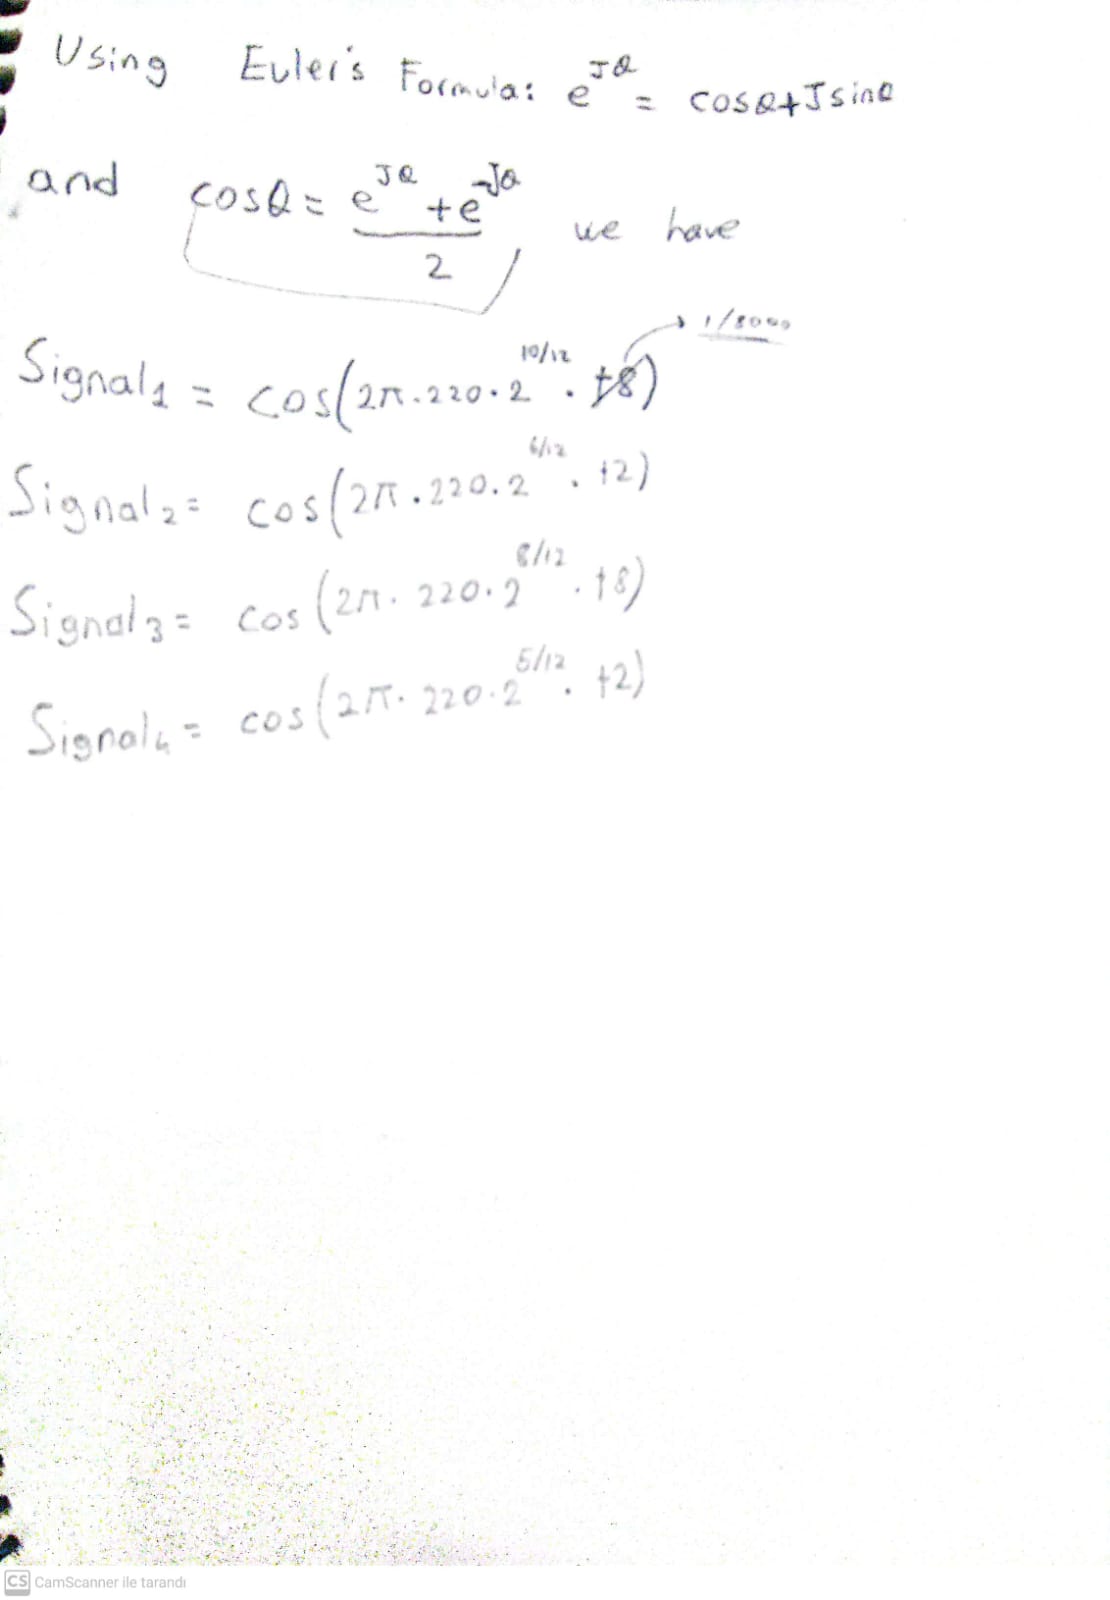 Using Euler's Formula: e^Jθ = cosθ+Jsinθ
and cosθ = e^Jθ + e^-Jθ / 2 we have
1/8000
Signal1 = cos(2π.220.2^10/12 . t8)
Signal2 = cos(2π.220.2^6/12 . t2)
Signal3 = cos(2π.220.2^8/12 . t8)
Signal4 = cos(2π.220.2^5/12 . t2)
CS CamScanner ile tarandı